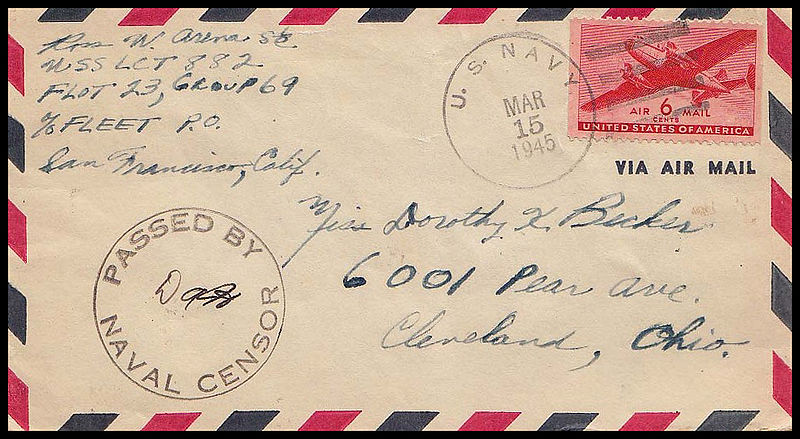 Ross W. Arena S2c
USS LCT 882
FLOT 23, GROUP 69
c/o FLEET P.O.
San Francisco, Calif.
U.S. NAVY
MAR
15
1945
AIR 6 MAIL
CENTS
UNITED STATES OF AMERICA
VIA AIR MAIL
Miss Dorothy K. Becker
6001 Pear Ave.
Cleveland, Ohio.
PASSED BY
NAVAL CENSOR